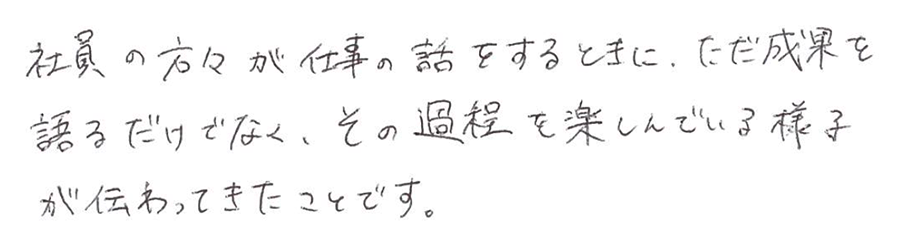 社員の方々が仕事の話をするときに、ただ成果を
語るだけでなく、その過程を楽しんでいる様子
が伝わってきたことです。